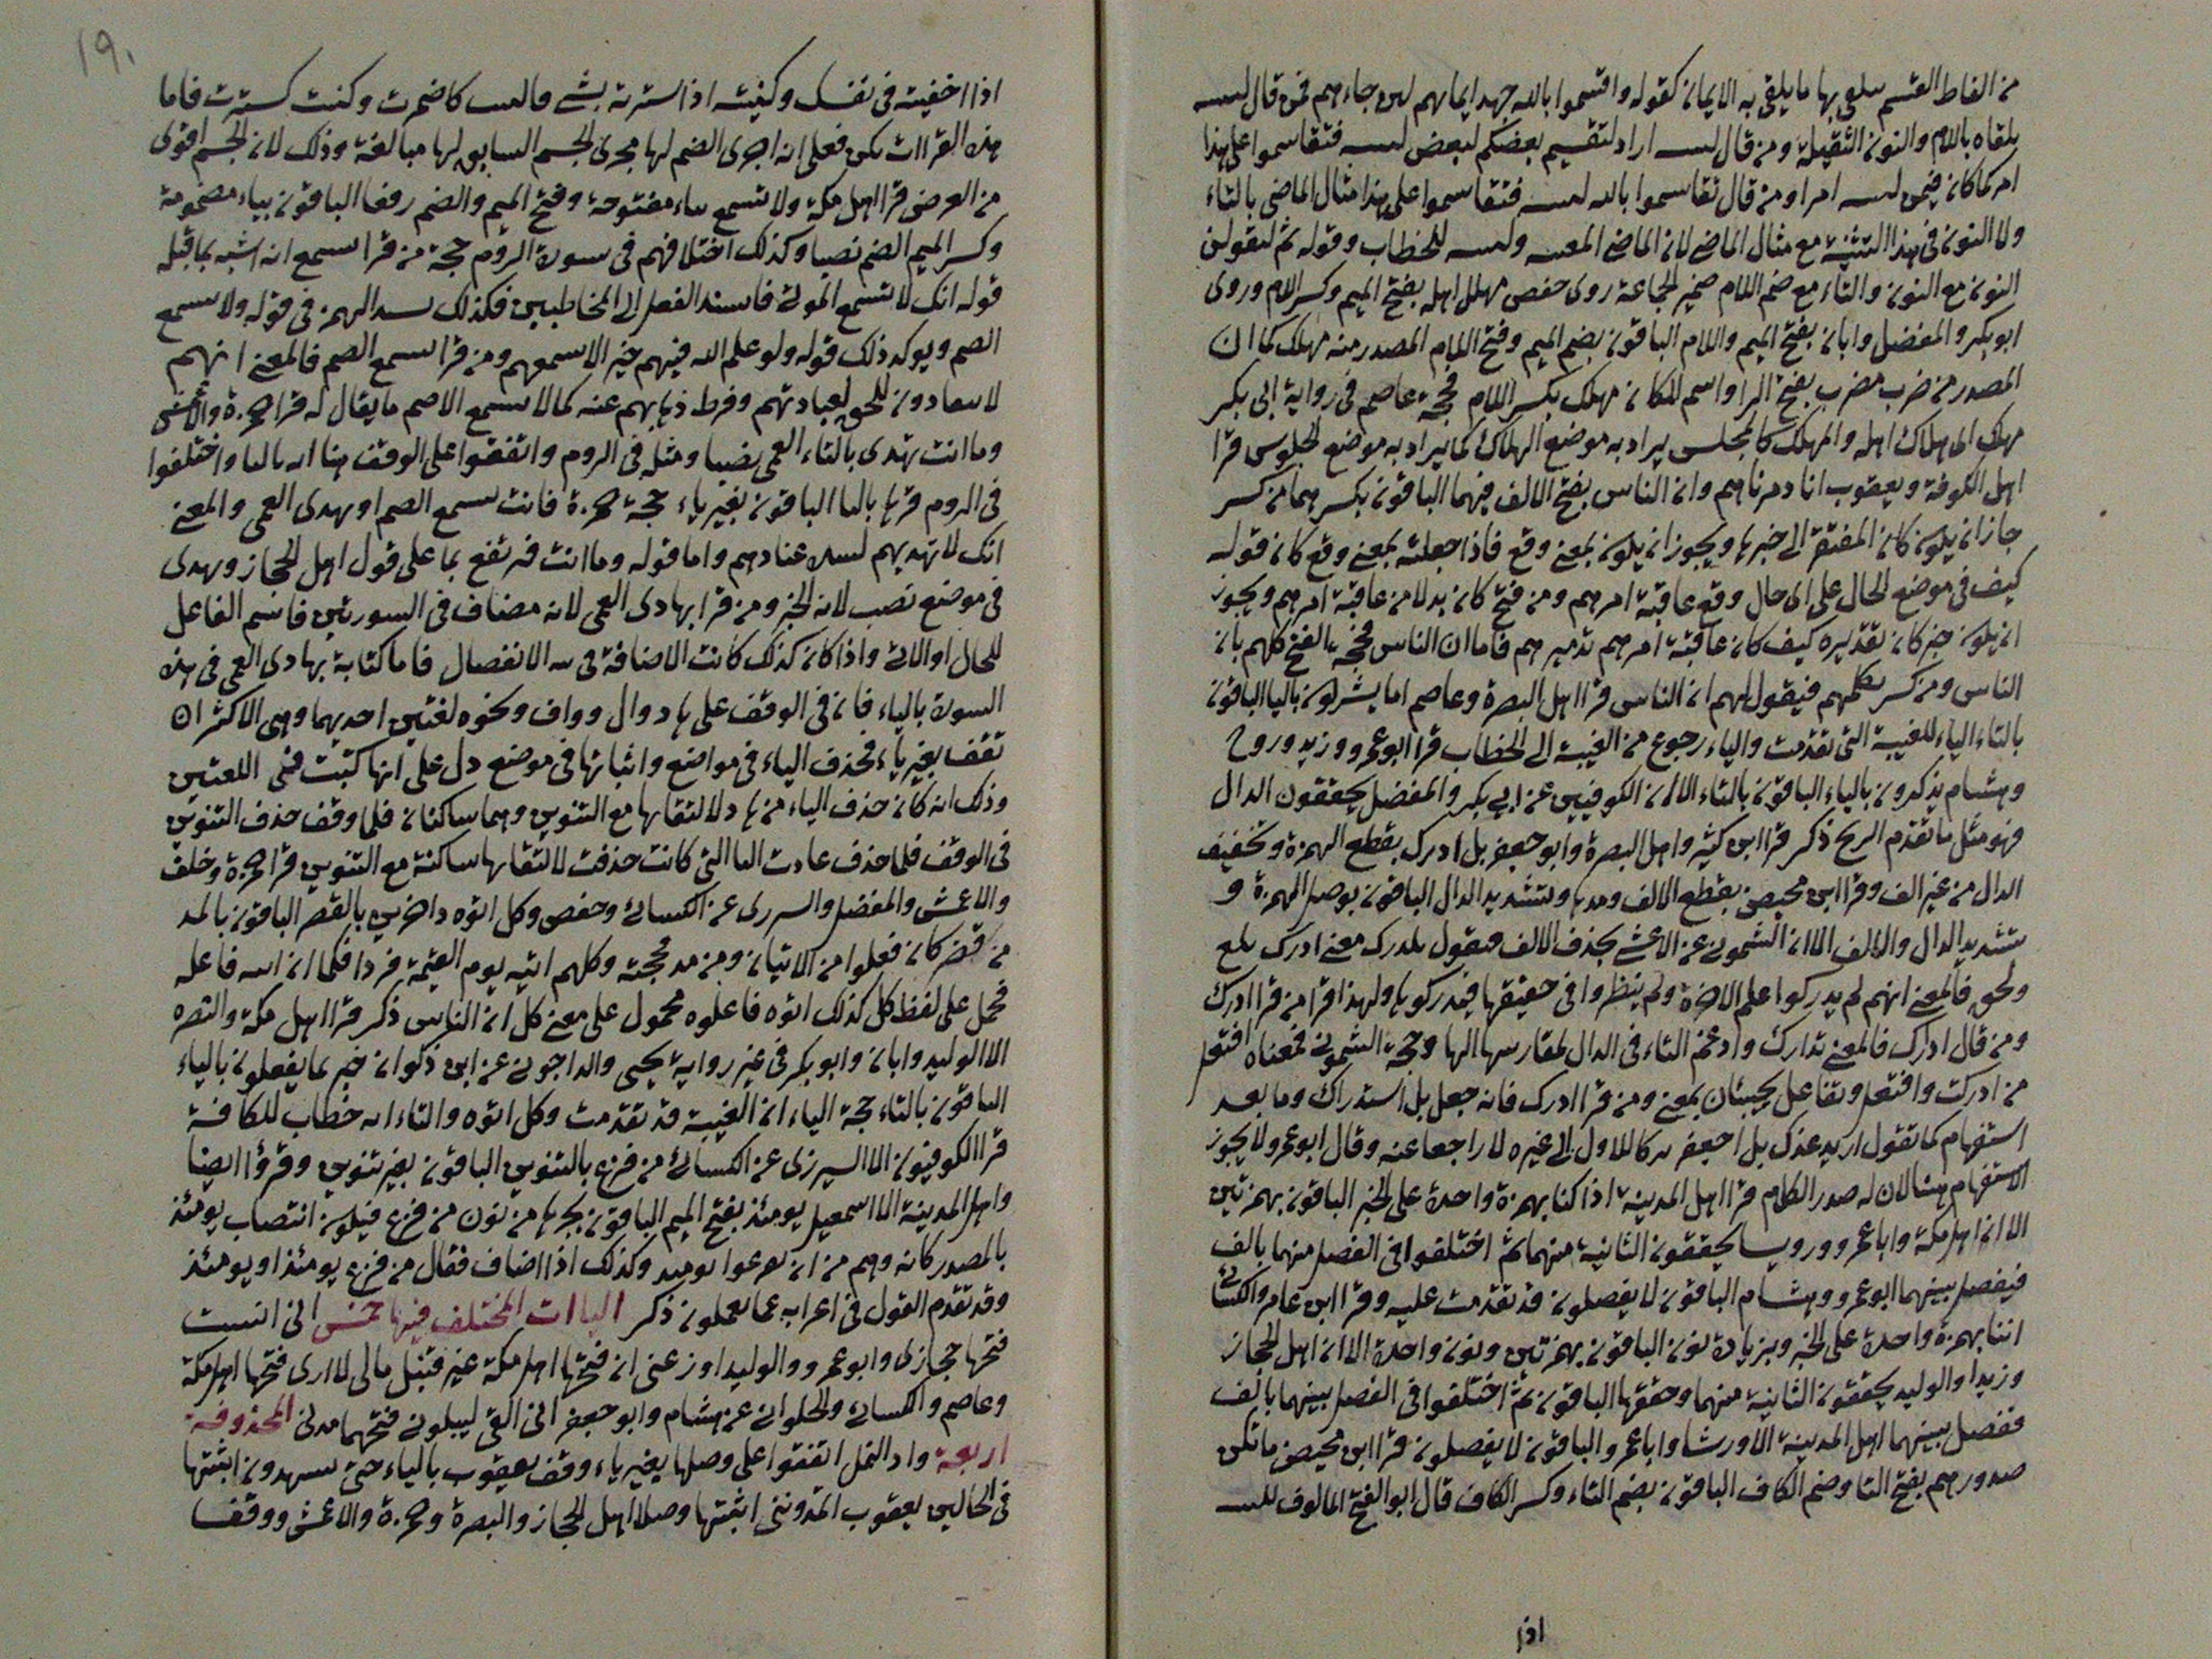 من الفاظ القسم سلعى بها ما يلقى به الايمان كقوله واقسموا بالله جهد ايمانهم لىن جاءهم فمن قال لىىىه
يلقاه باللام والنون الثقيلة ومن قال لىىىه اراد لتقسيم بعضكم لبعض لىىىه فتقاسموا على هذا
امر كما كان فيمن لىىىه امرا ومن قال تقاسموا بالله لىىىه فتقاسموا على هذا مثال الماضى بالتاء
ولا النون فى هذا التثنية مع مثال الماضى لان الماضى المعىىه ولىىىه للخطاب وقوله ثم لنقولن
النون مع النون والتاء مع ضم اللام ضمير الجماعة روى حفص مهلك اهله بفتح الميم وكسر اللام وروى
ابو بكر والمفضل وابان بفتح الميم واللام الباقون بضم الميم وفتح اللام المصدر منه مهلك كما ان
المصدر من ضرب مضرب بفتح الرا واسم المكان مهلك بكسر اللام فحجة عاصم فى رواية ابى بكر
مهلك اى هلاك اهله والمهلك كالمجلس يراد به موضع الهلاك كما يراد به موضع الجلوس قرا
اهل الكوفة ويعقوب انا دمرناهم وان الناس بفتح الالف فيهما الباقون بكسرهما من كسر
جاز ان يكون كان المفتقر الى خبرها ويجوز ان يكون بمعنى وقع فاذا جعلته بمعنى وقع كان قوله
كيف فى موضع الحال على اى حال وقع عاقبة امرهم ومن فتح كان بدلا من عاقبة امرهم ويجوز
ان يكون خبر كان تقديره كيف كان عاقبة امرهم تدميرهم فاما ان الناس فحجة الفتح كلهم بان
الناس ومن كسر تكلمهم فيقول لهم ان الناس قرا اهل البصرة وعاصم اما يشركون باليا الباقون
بالتاء الياء للغيبة التى تقدمت والياء رجوع من الغيبة الى الخطاب قرا ابو عمرو وزيد وروح
وهشام يذكرون بالياء الباقون بالتاء الا ان الكوفيين عن ابى بكر والمفضل يحققون الدال
فهو مثل ما تقدم الريح ذكر قرا ابن كثير واهل البصرة وابو جعفر بل ادرك بقطع الهمزة وتخفيف
الدال من غير الف وقرا ابن محيصن بقطع الالف ومدها وتشديد الدال الباقون بوصل الهمزة و
بتشديد الدال والالف الا ان الشمونى عن الاعشى بحذف الالف فىقول بلدرك معنى ادرك بلغ
ولحق فالمعنى انهم لم يدركوا علم الاخرة ولم ينظروا فى حقيقتها فيدركوها ولهذا قرا من قرا ادرك
ومن قال ادارك فالمعنى تدارك وادغم التاء فى الدال لمقاربتها الىها وحجة الشمونى فمعناه افتعل
من ادركت وافتعل وتفاعل يجيئان بمعنى ومن قرا ادرك فانه جعل بل استدراك وما بعد
استفهام كما تقول اريد عذك بل احيعفر ىركا للاول الى غيره لا راجعا عنه وقال ابو عمرو لا يجوز
الاستفهام هنا لان له صدر الكلام قرا اهل المدينة اذا كنا بهمزة واحدة على الخبر الباقون بهمزتين
الا ان اهل مكة وابا عمرو ورويسا يحققون الثانية منهما ثم اختلفوا فى الفصل منهما بالف
فيفصل بينهما ابو عمرو وهشام الباقون لا يفصلون قد تقدمت عليه وقرا ابن عامر والكسائى
اننا بهمزة واحدة على الخبر وبزيادة نون الباقون بهمزتين ونون واحدة الا ان اهل الحجاز
وزيدا والوليد يحققون الثانية منهما وحققها الباقون ثم اختلفوا فى الفصل بينهما بالف
ففصل بينهما اهل المدينة الا ورشا وابا عمرو والباقون لا يفصلون قرا ابن محيصن ما تكن
صدورهم بفتح التا وضم الكاف الباقون بضم التاء وكسر الكاف قال ابو الفتح المالوف للىىىه
اذا
١٩٠
اذا اخفيته فى نفسك وكننته اذا سترته بشى فالىىب كاضمرت وكنت كسترت فاما
هذه القراات ىكن فعلى انه اجرى الضم لها مجرى الجسم السابق لها مبالغة وذلك لان الجسم اقوى
من العرض قرا اهل مكة ولا تسمع بىاء مفتوحة وفتح الميم والضم رفعا الباقون بياء مضمومة
وكسر الميم الضم نصبا وكذلك اختلافهم فى سورة الروم حجة من قرا ىسمع انه اشبه بما قبله
قوله انك لا تسمع الموتى فاسند الفعل الى المخاطبين فكذلك ىسىد الهمز فى قوله ولا ىسمع
الصم ويوكد ذلك قوله ولو علم الله فيهم خيرا لاسمعهم ومن قرا ىسمع الصم فالمعنى انهم
لا ىىعادون للحق لعبادتهم وفرط ذهابهم عنه كما لا ىسمع الاصم ما يقال له قرا حمزة والاعمش
وما انت تهدى بالتاء العمى نصبا ومثله فى الروم واتفقوا على الوقف هنا انه بالىا واختلفوا
فى الروم قرىها بالىا الباقون بغير ياء حجة حمزة فانت تسمع الصم او تهدى العمى والمعنى
انك لا تهديهم لشدة عنادهم واما قوله وما انت فرتفع بما على قول اهل الحجاز وتهدى
فى موضع نصب لانه الخبر ومن قرا بهادى العمى لانه مضاف فى السورتين فاسم الفاعل
للحال او الاتى واذا كان كذلك كانت الاضافة فى ىىه الانفصال فاما كتابة بهادى العمى فى هذه
السورة بالياء فان فى الوقف على هاد وال وواف ونحوه لغتين احديهما وهى الاكثر ان
تقف بغير ياء فحذف الياء فى مواضع واثباتها فى موضع دل على انها كتبت فىى اللغتين
وذلك انه كان حذف الياء من هاد لالتقائها مع التنوين وهما ساكنان فلما وقف حذف التنوين
فى الوقف فلما حذف عادت الىا التى كانت حذفت لالتقائها ساكنة مع التنوين قرا حمزة وخلف
والاعمش والمفضل والسررى عن الكسائى وحفص وكل اتوه داخرين بالقصر الباقون بالمد
من قصر كان فعلوا من الاتيان ومن مد فحجته وكلهم اتيه يوم القيمة فردا فكما ان اىىه فاعله
فحمل على لفظ كل كذلك اتوه فاعلوه محمول على معنى كل ان الناس ذكر قرا اهل مكة والبصره
الا الوليد وابان وابو بكر فى غير رواية يحيى والداجونى عن ابن ذكوان خبير بما يفعلون بالياء
الباقون بالتاء حجة الياء ان الغيبة قد تقدمت وكل اتوه والتاء انه خطاب للكافة
قرا الكوفيون الا السيرزى عن الكسائى من فزع بالتنوين الباقون بغير تنوين وقرؤا ايضا
واهل المدينة الا اسمعيل يومئذ بفتح الميم الباقون بجرها من نون من فزع فيكون انتصاب يومئذ
بالمصدر كانه وهم من ان ىفزعوا ىومىد وكذلك اذا اضاف فقال من فزع يومئذ او يومئذ
وقد تقدم القول فى اعرابه عما ىعملون ذكر الياات المختلف فيها خمس انى انست
فتحها حجازى وابو عمرو والوليد اوزعنى ان فتحها اهل مكة غير قنبل مالى لا ارى فتحها اهل مكة
وعاصم والكسائى والحلوانى عن هشام وابو جعفر انى القى ليبلونى فتحهما مدنى المحذوفة
اربعة واد النمل اتفقوا على وصلها بغير ياء وقف يعقوب بالياء حتى تىشهدون اثبتها
فى الحالين يعقوب اتمدوننى اثبتها وصلا اهل الحجاز والبصرة وحمزة والاعمش ووقفا